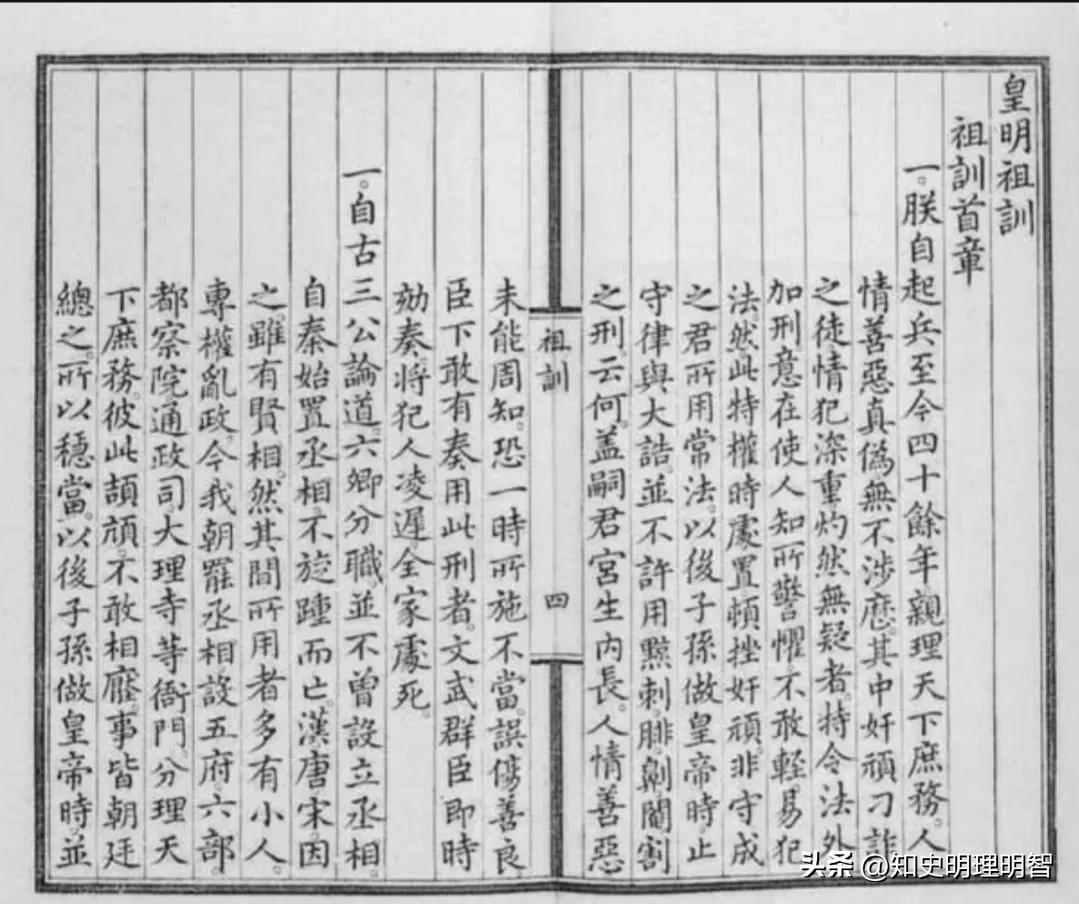 皇明祖訓
祖訓首章
一。朕自起兵至今四十餘年。親理天下庶務。人
情善惡真偽。無不涉歷。其中奸頑刁詐
之徒。情犯深重。灼然無疑者。特令法外
加刑。意在使人知所警懼。不敢輕易犯
法。然此特權時處置。頓挫奸頑。非守成
之君所用常法。以後子孫做皇帝時。止
守律與大誥。並不許用黥刺腓劓閹割
之刑。云何。蓋嗣君宮生內長。人情善惡
未能周知。恐一時所施不當。誤傷善良
臣下敢有奏用此刑者。文武群臣即時
劾奏。將犯人凌遲。全家處死。
一。自古三公論道。六卿分職。並不曾設立丞相
自秦始置丞相。不旋踵而亡。漢唐宋。因
之。雖有賢相。然其間所用者多有小人。
專權亂政。今我朝罷丞相。設五府。六部。
都察院。通政司。大理寺等衙門。分理天
下庶務。彼此頡頏。不敢相壓。事皆朝廷
總之。所以穩當。以後子孫做皇帝時。並
祖訓
四
头条 @知史明理明智